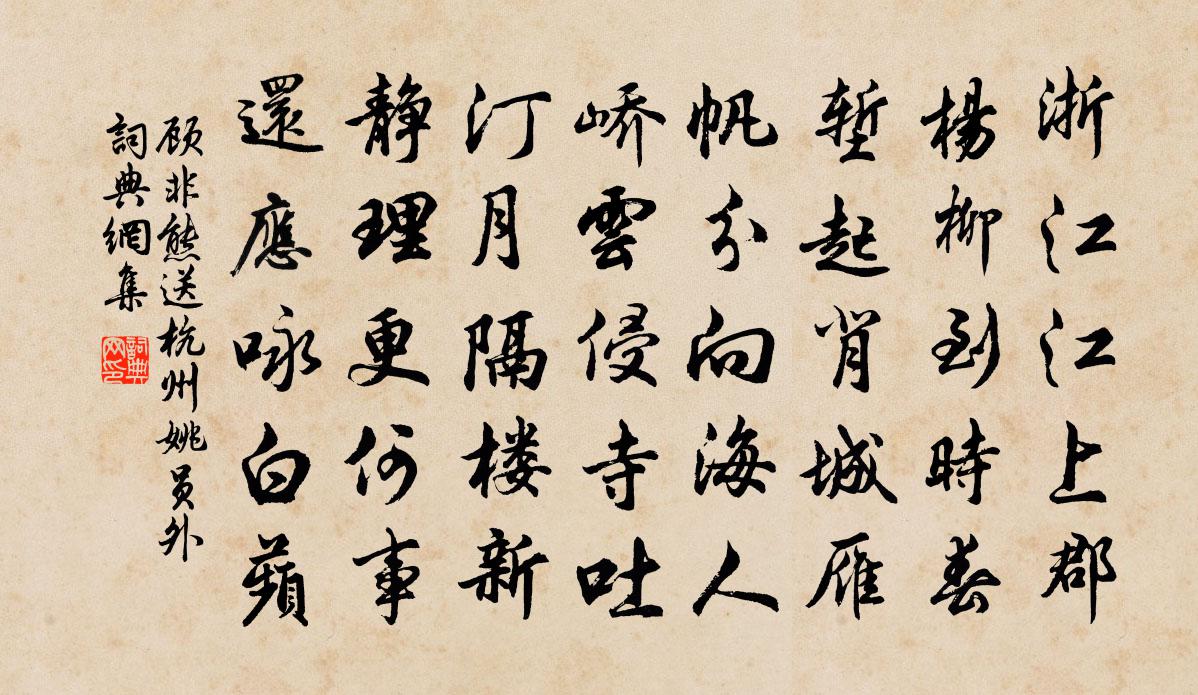 浙江江上郡
楊柳到時春
堑起背城雁
帆分向海人
峤雲侵寺吐
汀月隔楼新
静理更何事
還應咏白蘋
顾非熊送杭州姚员外
詞典網集
詞典网印